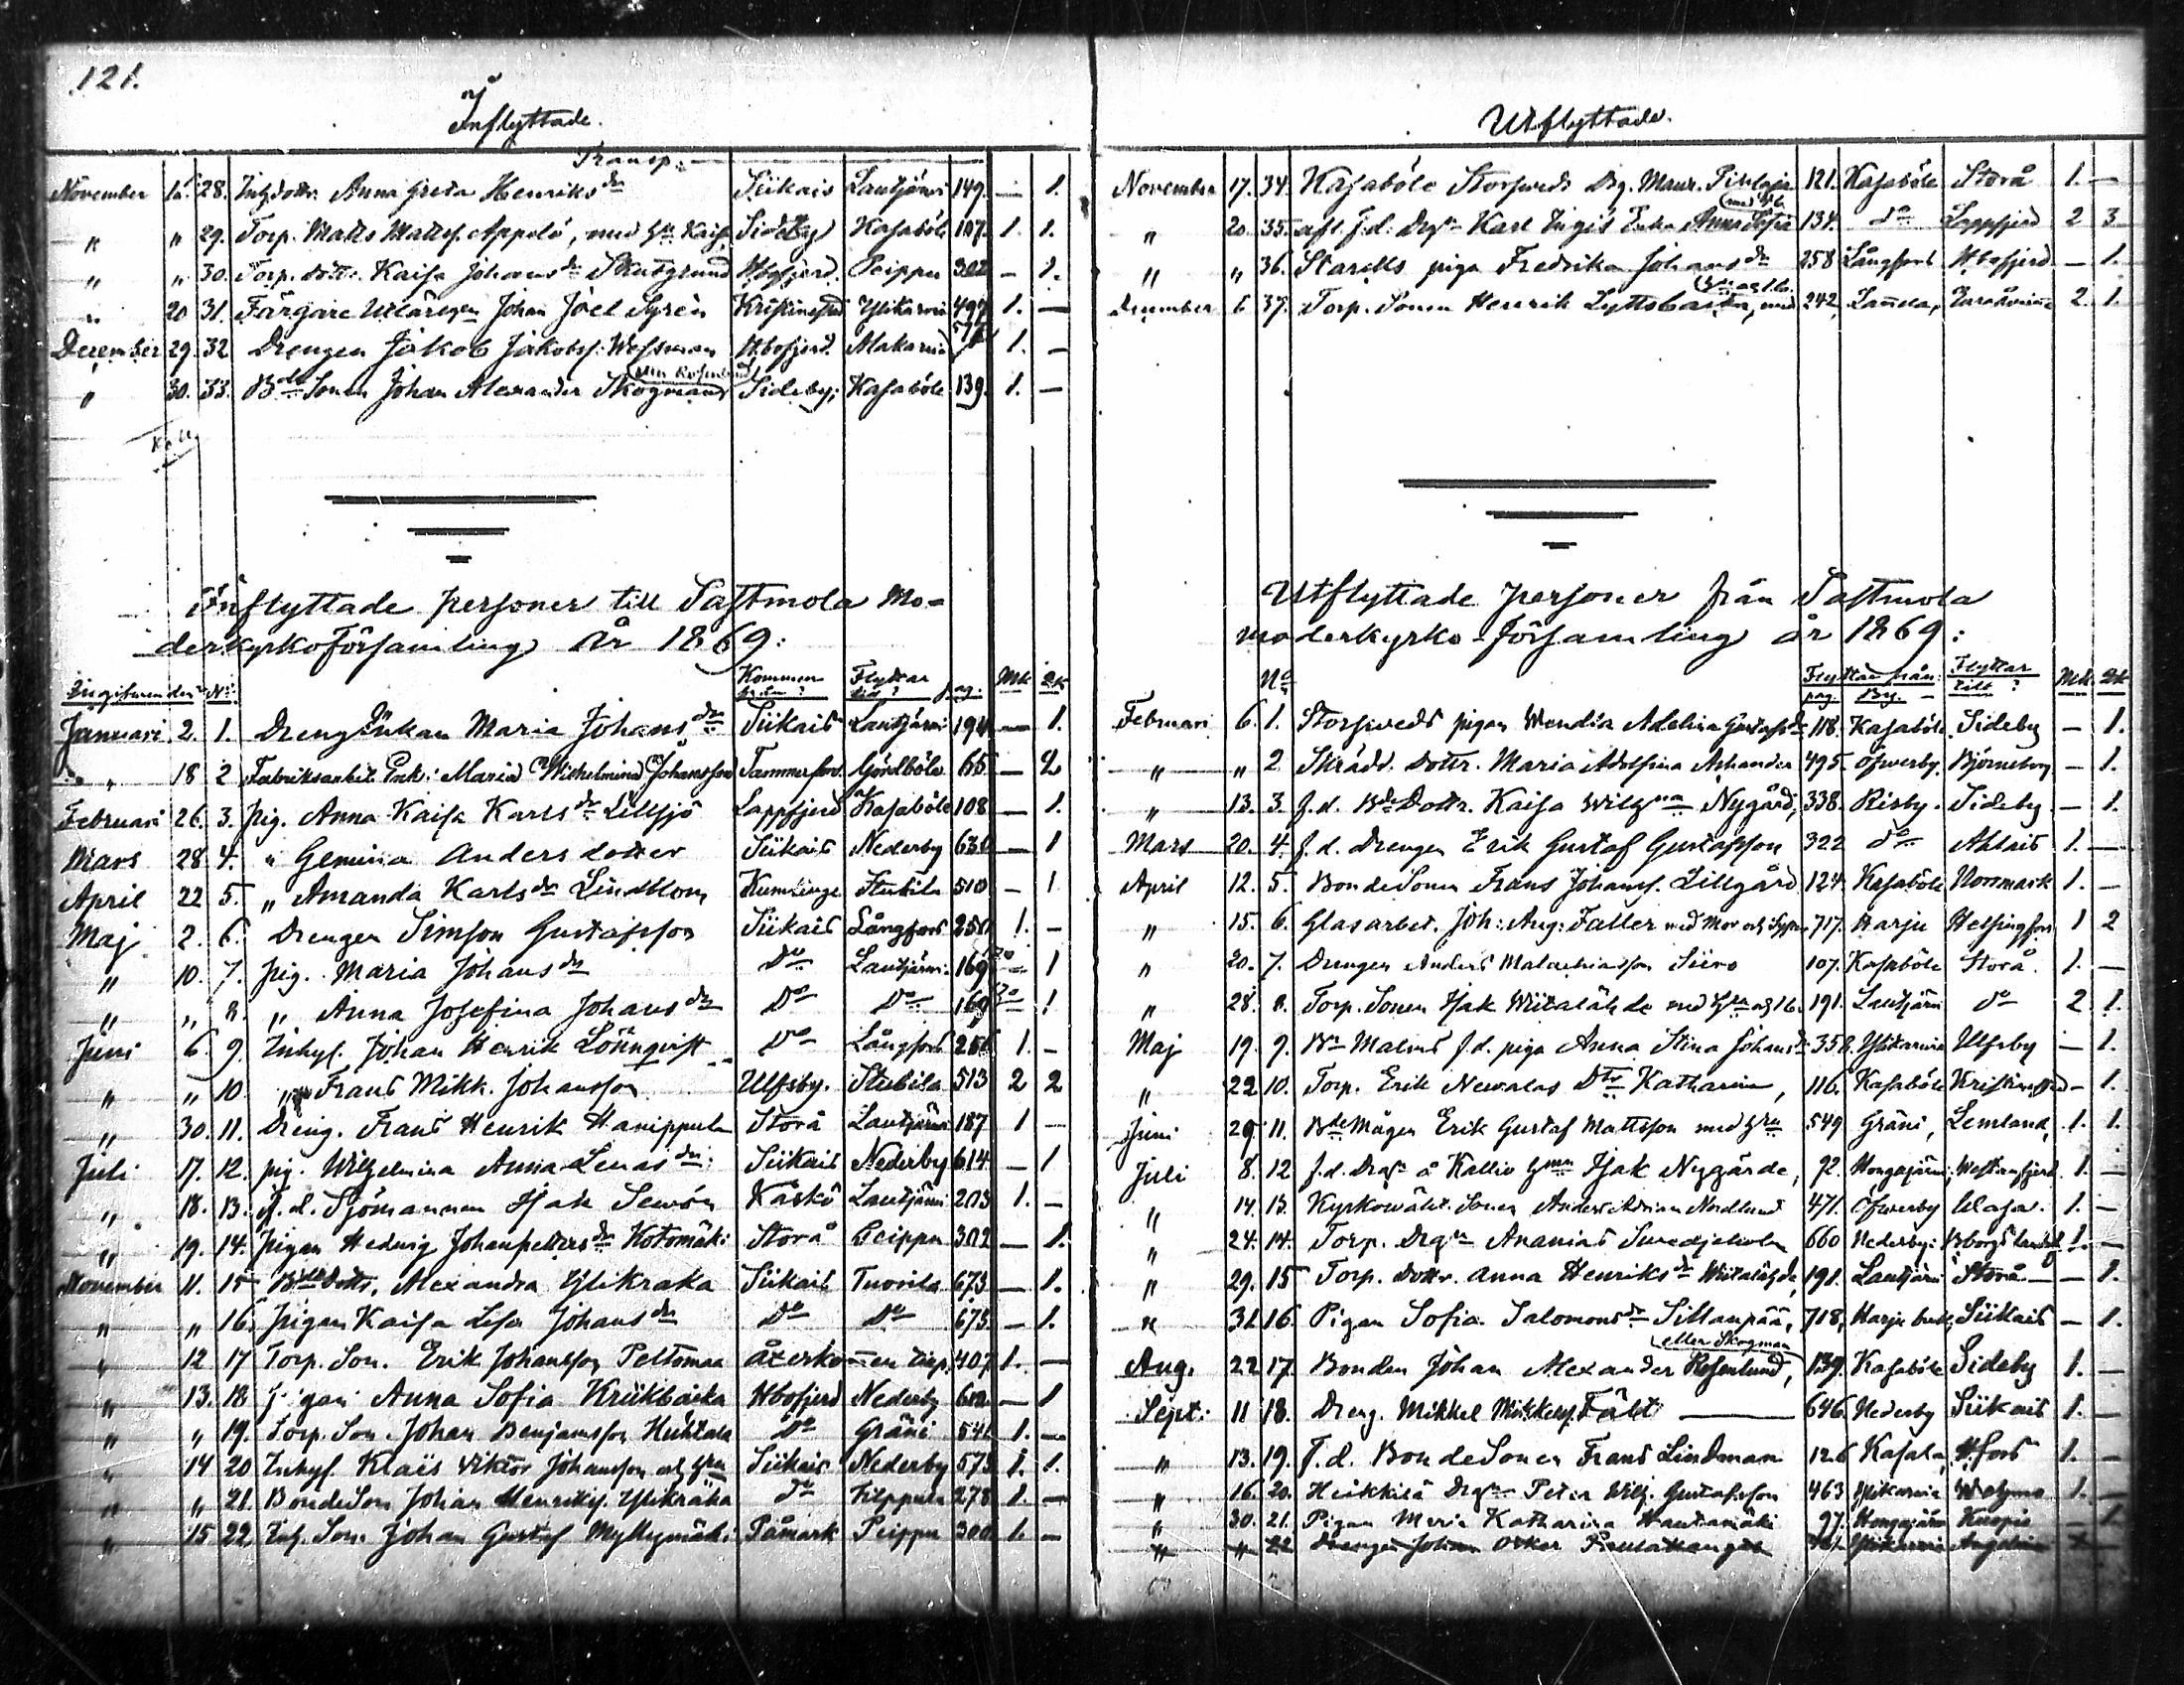 121.
Inflyttade.
Transp.
November 28. Inhysdottr. Anna Greta Henriksdr Siikais Lautjärvi 149. — 1.
" " 29. Torp. Matts Mattss. Appelö, med Kaisa Sideby Kasaböle 107. 1. 1.
" " 30. Torp. dottr. Kaisa Johansdr Skutgrund Hbofjerd. Peippu 302 — 1.
" 20 31. Färgare Johan Joel Syrén Kristinestad Ylikarvia 497 1. —
December 29. 32 Drengen Jakob Jakobss. Wessman Hbofjerd. Alakarvia 1. —
eller Rosenlund
" 30. 33. Bde Sonen Johan Alexander Skogman Sideby, Kasaböle 139. 1. —
Inflyttade personer till Sastmola Mo-
derkyrkoförsamling År 1869:
No Kommer från? Flyttar till? pag. Mk Qk
Januari 2. 1. Drengenkan Maria Johansdr Siikais Lautjärvi 194 — 1.
" 18 2 Fabriksarbet. Enk: Maria Wilhelmina Johansson Tammerfors Gördböle 66 — 2
Februari 26. 3. Pig. Anna Kaisa Karlsdr Lillsjö Lappfjerd Kasaböle 108 — 1.
Mars 28 4. " Gemina Andersdotter Siikais Nederby 630 — 1
April 22 5. " Amanda Karlsdr Lindblom Kumlinge Stubila 510 — 1
Maj 2. 6. Drengen Simson Gustafsson Siikais Långfors 250 1. —
" 10. 7. Pig. Maria Johansdr Do Lautjärvi 169 — 1
" " 8. " Anna Josefina Johansdr Do Do 169 — 1
Juni 6. 9. Inhys. Johan Henrik Lönnqvist Do Långfors 256 1. —
" " 10. " Frans Mikk. Johansson Ulfsby. Stubila 513 2 2
" 30. 11. Dreng. Frans Henrik Hanippula Storå Lautjärvi 187 1 —
Juli 17. 12. pig. Wilhelmina Anna Lenasdr: Siikais Nederby 614 — 1
" 18. 13. f. d. Sjömannen Isak Sewón Kaskö Lautjärvi 203 1. —
" 19. 14. Pigan Hedvig Johanpettersdr Kotomäki Storå Peippu 302 — 1.
November 11. 15 Bde Dottr. Alexandra Ylikraka Siikais Tuorila 673 — 1.
" " 16. Pigan Kaisa Lisa Johansdr Do Do 675. — 1.
" 12 17 Torp. Son. Erik Johansson Peltomaa återkommen 407 1. —
" 13. 18 Pigan Anna Sofia Kriikbacka Hbofjerd Nederby 612 — 1
" " 19. Torp. Son. Johan Benjamsson Huhtala Do Gräni 541 1. —
" 14 20 Inhys. Klaës Viktor Johansson och hru Siikais Nederby 575 1. 1.
" " 21. BondeSon Johan Henrikss. Ylikraka do Filppula 278 1. —
" 15 22 Inh. Son. Johan Gustaf Myllymäki Påmark Peippu 300 1. —
Utflyttade.
November 17. 34. Kasaböle Storsveds Drg. Maur. 121. Kasaböle Storå 1. —
" 20. 35. afl. f.d. Drgn Karl Enka Anna Sofia 134. do Lappfjerd 2 3
" " 36. Starells piga Fredrika Johansdr 258 Långfors Hbofjerd — 1.
December 6 37. Torp. Sonen Henrik Lyttbacka, med 242. 2. 1.
Utflyttade personer från Sastmola
moderkyrko-församling år 1869:
No Flyttar från: pag. By. Flyttar till? Mk. Qk
Februari 6. 1. Storsveds pigan Wendla Adelina Gustafsdr 118. Kasaböle Sideby — 1.
" " 2 Skrädd. Dottr. Maria Adolfina Arhander 495. Öfverby. Björneborg — 1.
" 13. 3. f.d. Bde Dottr. Kaisa Wilhna Nygård, 338. Risby. Sideby — 1.
Mars 20. 4. f.d. drengen Erik Gustaf Gustafsson 322 do Ahlais 1. —
April 12. 5. BondeSonen Frans Johans. Lillgård 124. Kasaböle Norrmark 1. —
" 15. 6. Glasarbet. Joh: Aug: Faller med Mor och Syster 717. Harju Helsingfors 1 2
" 20. 7. Drengen Anders Malachiasson Siiro 107. Kasaböle Storå. 1. —
" 28. 8. Torp. Sonen Isak Wiitalähde med hru och 1 b. 191. Lautjärvi do 2. 1.
Maj 19. 9. Bn Malms f.d. piga Anna Stina Johansdr 358. Ylikarvia Ulfsby — 1.
" 22 10. Torp. Erik Newalas Dtr Katharina, 116. Kasaböle Kristinestad — 1.
Juni 29. 11. Bde Mågen Erik Gustaf Mattsson med hru 549 Gräni, Lemland, 1. 1.
Juli 8. 12 f.d. Drgn å Kallio hmn Isak Nygårde, 92. Hongajärvi, Westanfjerd 1. —
" 14. 13. Kyrkowäkt. Sonen Anders Adrian Nordlund 471. Öfverby Wasa. 1. —
" 24. 14. Torp. Drgn Ananias 660 Nederby: 1. —
" 29. 15 Torp. Dottr. Anna Henriksdr Wiitalähde, 191. Lautjärvi Storå — 1.
" 31. 16. Pigan Sofia Salomonsdr Sillanpää, 718, Harju bruk, Siikais — 1.
eller Skogman
Aug. 22 17. Bonden Johan Alexander Rosenlund, 139. Kasaböle Sideby 1. —
Sept. 11 18. Dreng. Mikkel Mikkelss. Fält — 646. Nederby Siikais 1. —
" 13. 19. F.d. BondeSonen Frans Lindman 126 Kasala, H:fors 1. —
" 16. 20. Heikkilä Drgn Peter Wilh. Gustafsson 463 Ylikarvia 1. —
" 30. 21. Pigan Maria Katharina Hautamäki 97. Hongajärvi Kuopio — 1.
" " 22 Drengen Johan Oskar Ylikarvia